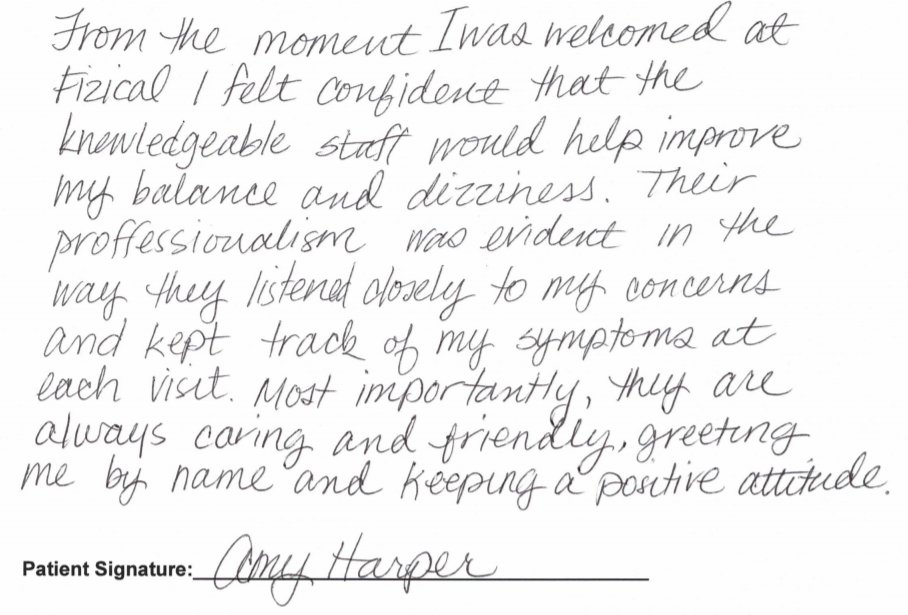 From the moment I was welcomed at
Fizical I felt confident that the
knowledgeable staff would help improve
my balance and dizziness. Their
proffessionalism was evident in the
way they listened closely to my concerns
and kept track of my symptoms at
each visit. Most importantly, they are
always caring and friendly, greeting
me by name and keeping a positive attitude.
Patient Signature: Amy Harper